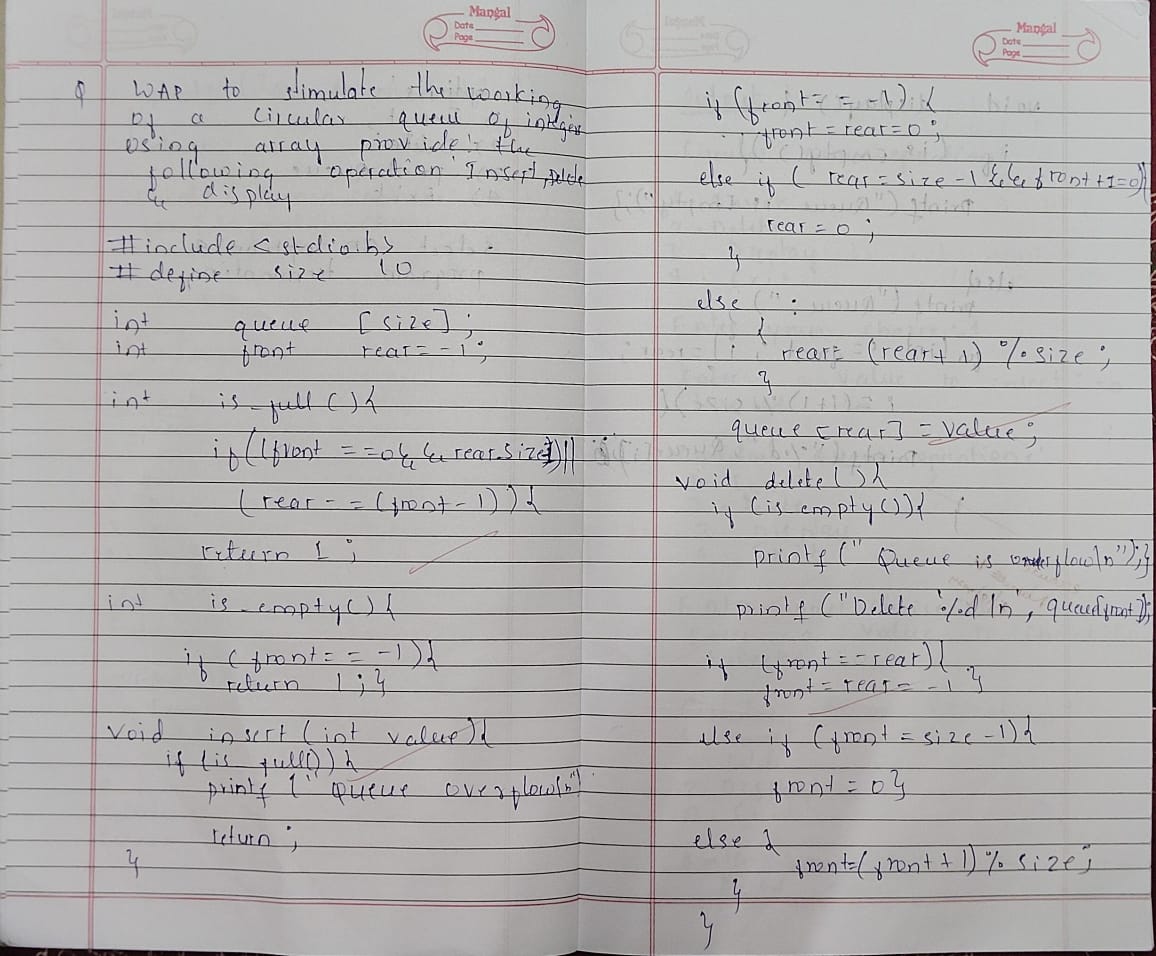 Mangal
Date
Page
Q WAP to stimulate the working
of a Circular queue of integers
using array provide the
following operation Insert, Delete
& display
#include <stdio.h>
# define size 10
int queue [size];
int front rear = -1;
int is_full () {
if ((front == 0 && rear size1) ||
(rear == (front-1)) {
return 1;
int is_empty() {
if (front == -1) {
return 1; }
void insert (int value) {
if (is full()) {
printf (" Queue overflow\n")
return ;
}
Mangal
Date
Page
if (front == -1) {
front = rear = 0;
else if ( rear = size - 1 && front +1=0){
rear = 0 ;
}
else :
{
rear = (rear + 1) % size ;
}
queue [rear] = value ;
void delete () {
if (is empty ()) {
printf (" Queue is underflow\n");}
printf ("Delete %d \n", queue[front]);
if (front == rear) {
front = rear = -1 }
else if (front = size -1) {
front = 0 }
else {
front = (front + 1) % size ;
}
}